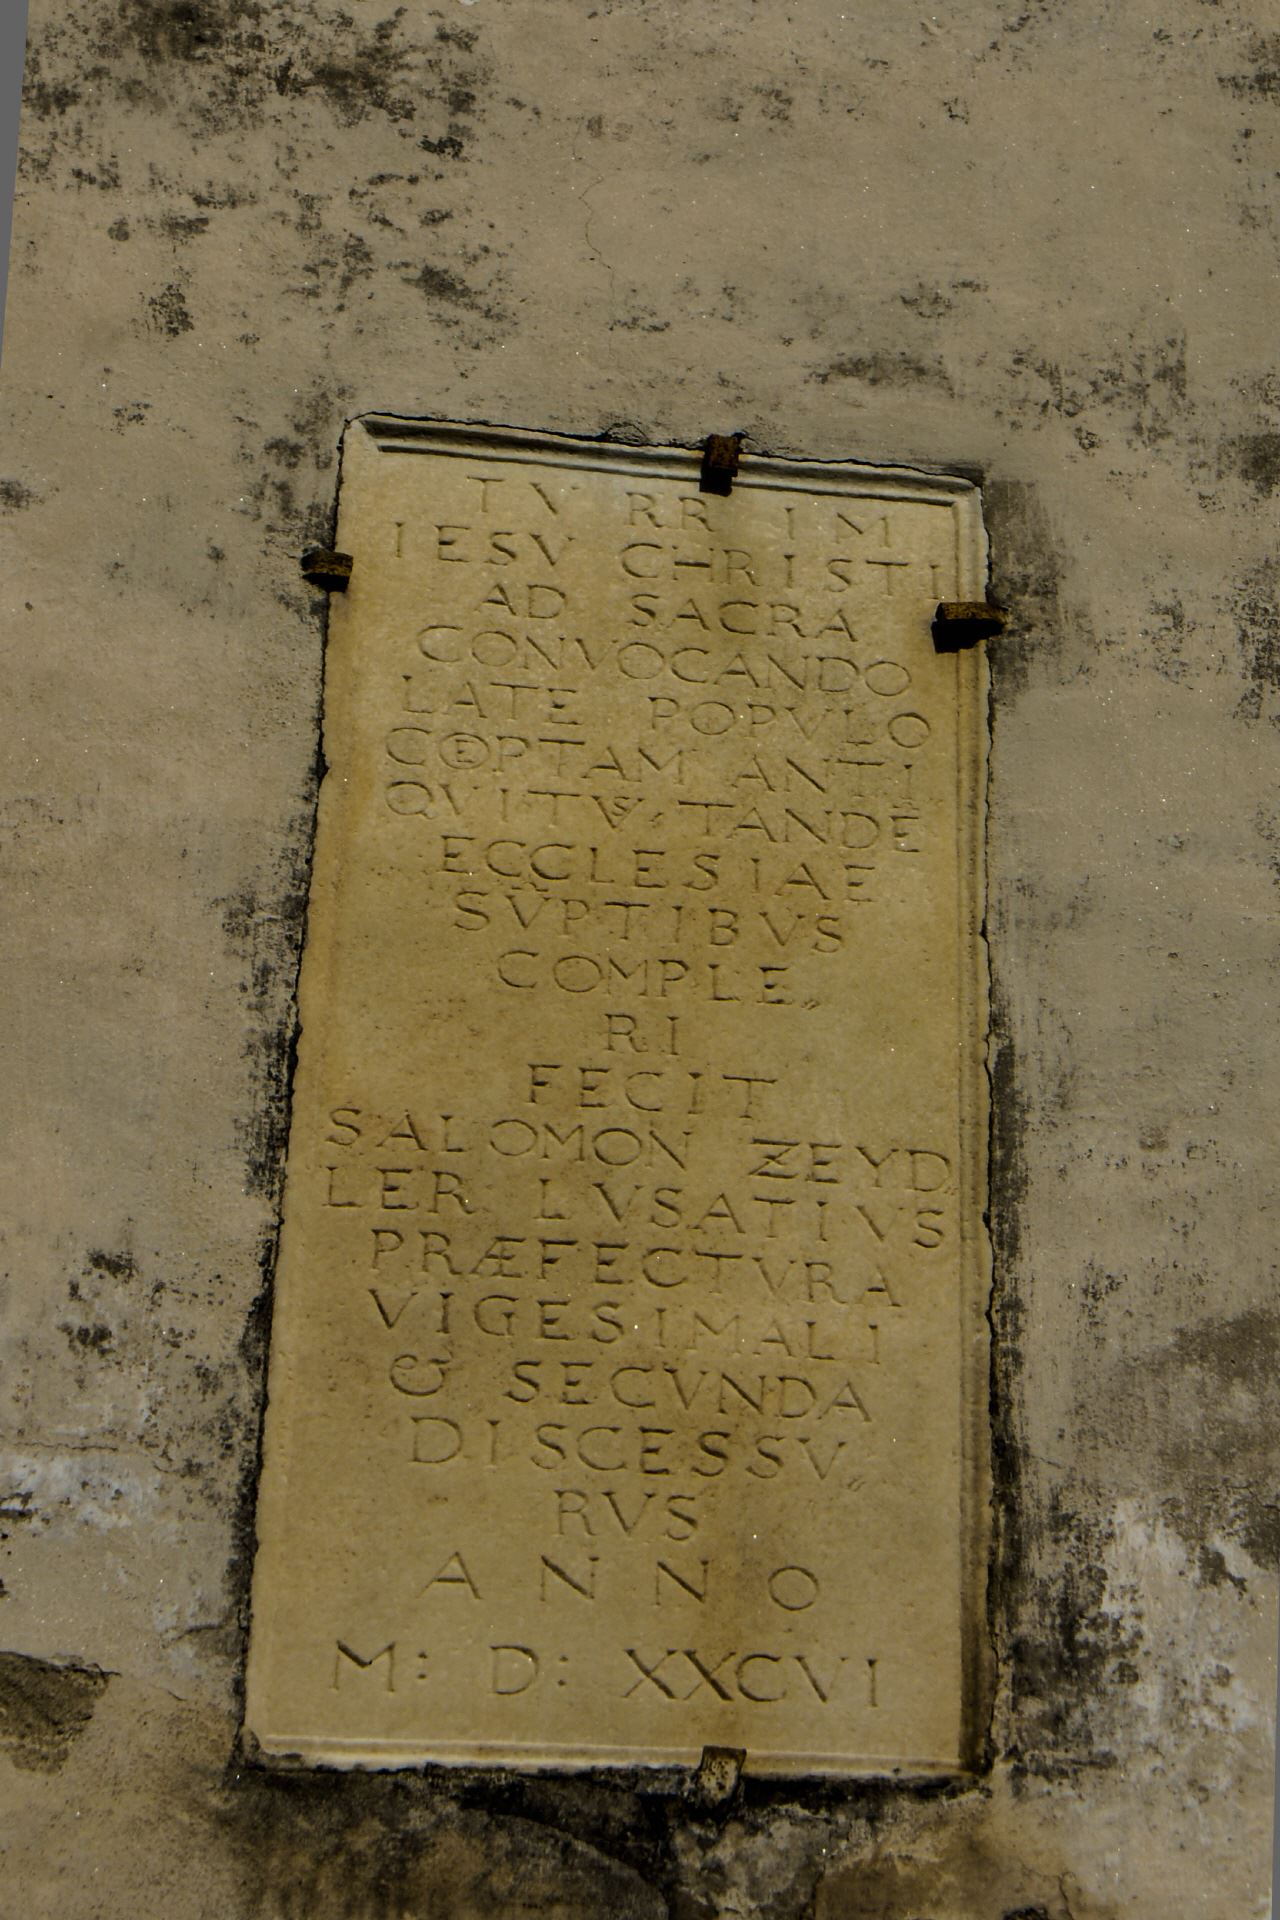 TVRRIM
IESV CHRISTI
AD SACRA
CONVOCANDO
LATE POPVLO
CŒPTAM ANTI
QVITVS, TANDĒ
ECCLESIAE
SṼPTIBVS
COMPLE„
RI
FECIT
SALOMON ZEYD„
LER LVSATIVS
PRÆFECTVRA
VIGESIMALI
& SECVNDA
DISCESSV„
RVS
ANNO
M: D: XXCVI